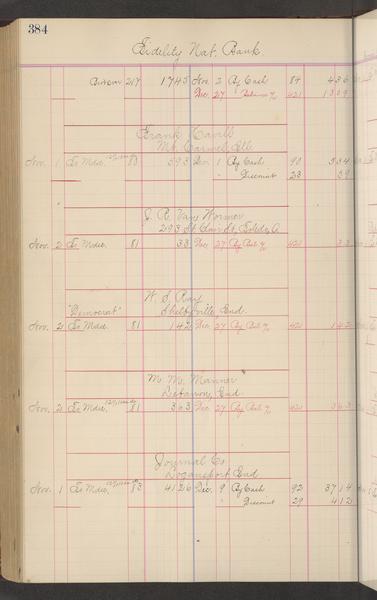 384
Fidelity Nat. Bank
217 1745 Nov. 2 By Cash 84 436
Dec. 27 " Balance 421 1309
Frank Havill
Mt. Carmel, Ill
Nov. 1 To Mdse. 83 393 Dec. 1 By Cash 90 334
" Discount 23 59
J. R. Van Wormer
2193 St. Clair St, Toledo, O.
Nov. 2 To Mdse. 81 33 Dec. 27 By Bal. 421 33
W. S. Ray
"Democrat" Shelbyville, Ind.
Nov. 2 To Mdse. 81 142 Dec. 27 By Bal. 421 142
M. M. Manner
Ind.
Nov. 2 To Mdse. 81 363 Dec. 27 By Bal. 421 363
Journal Co
Logansport Ind
Nov. 1 To Mdse. 83 4126 Dec. 9 By Cash 92 3714
" Discount 29 412